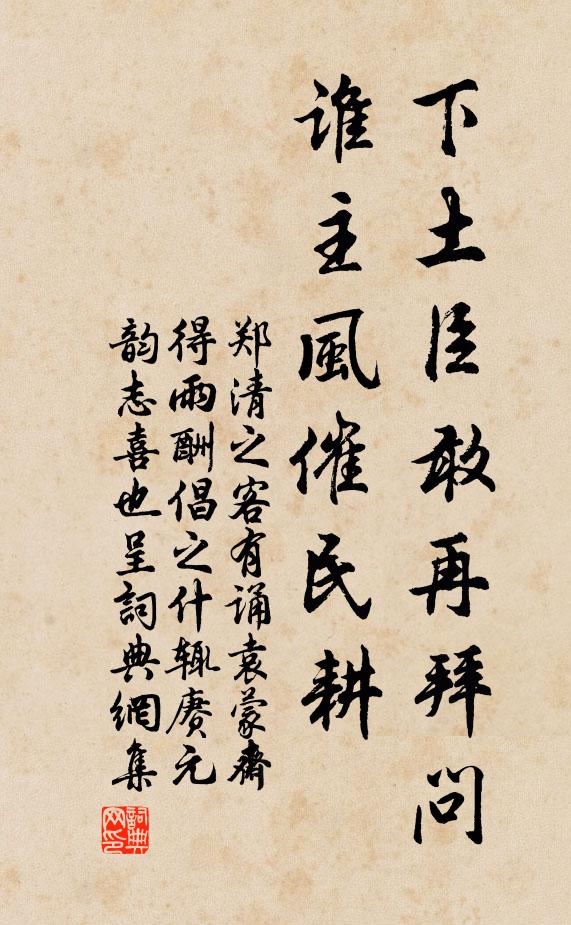 下土臣敢再拜問
谁主風催民耕
郑清之客有诵袁蒙齋
得雨酬倡之什輒赓元
韵志喜也呈詞典網集
詞典网印